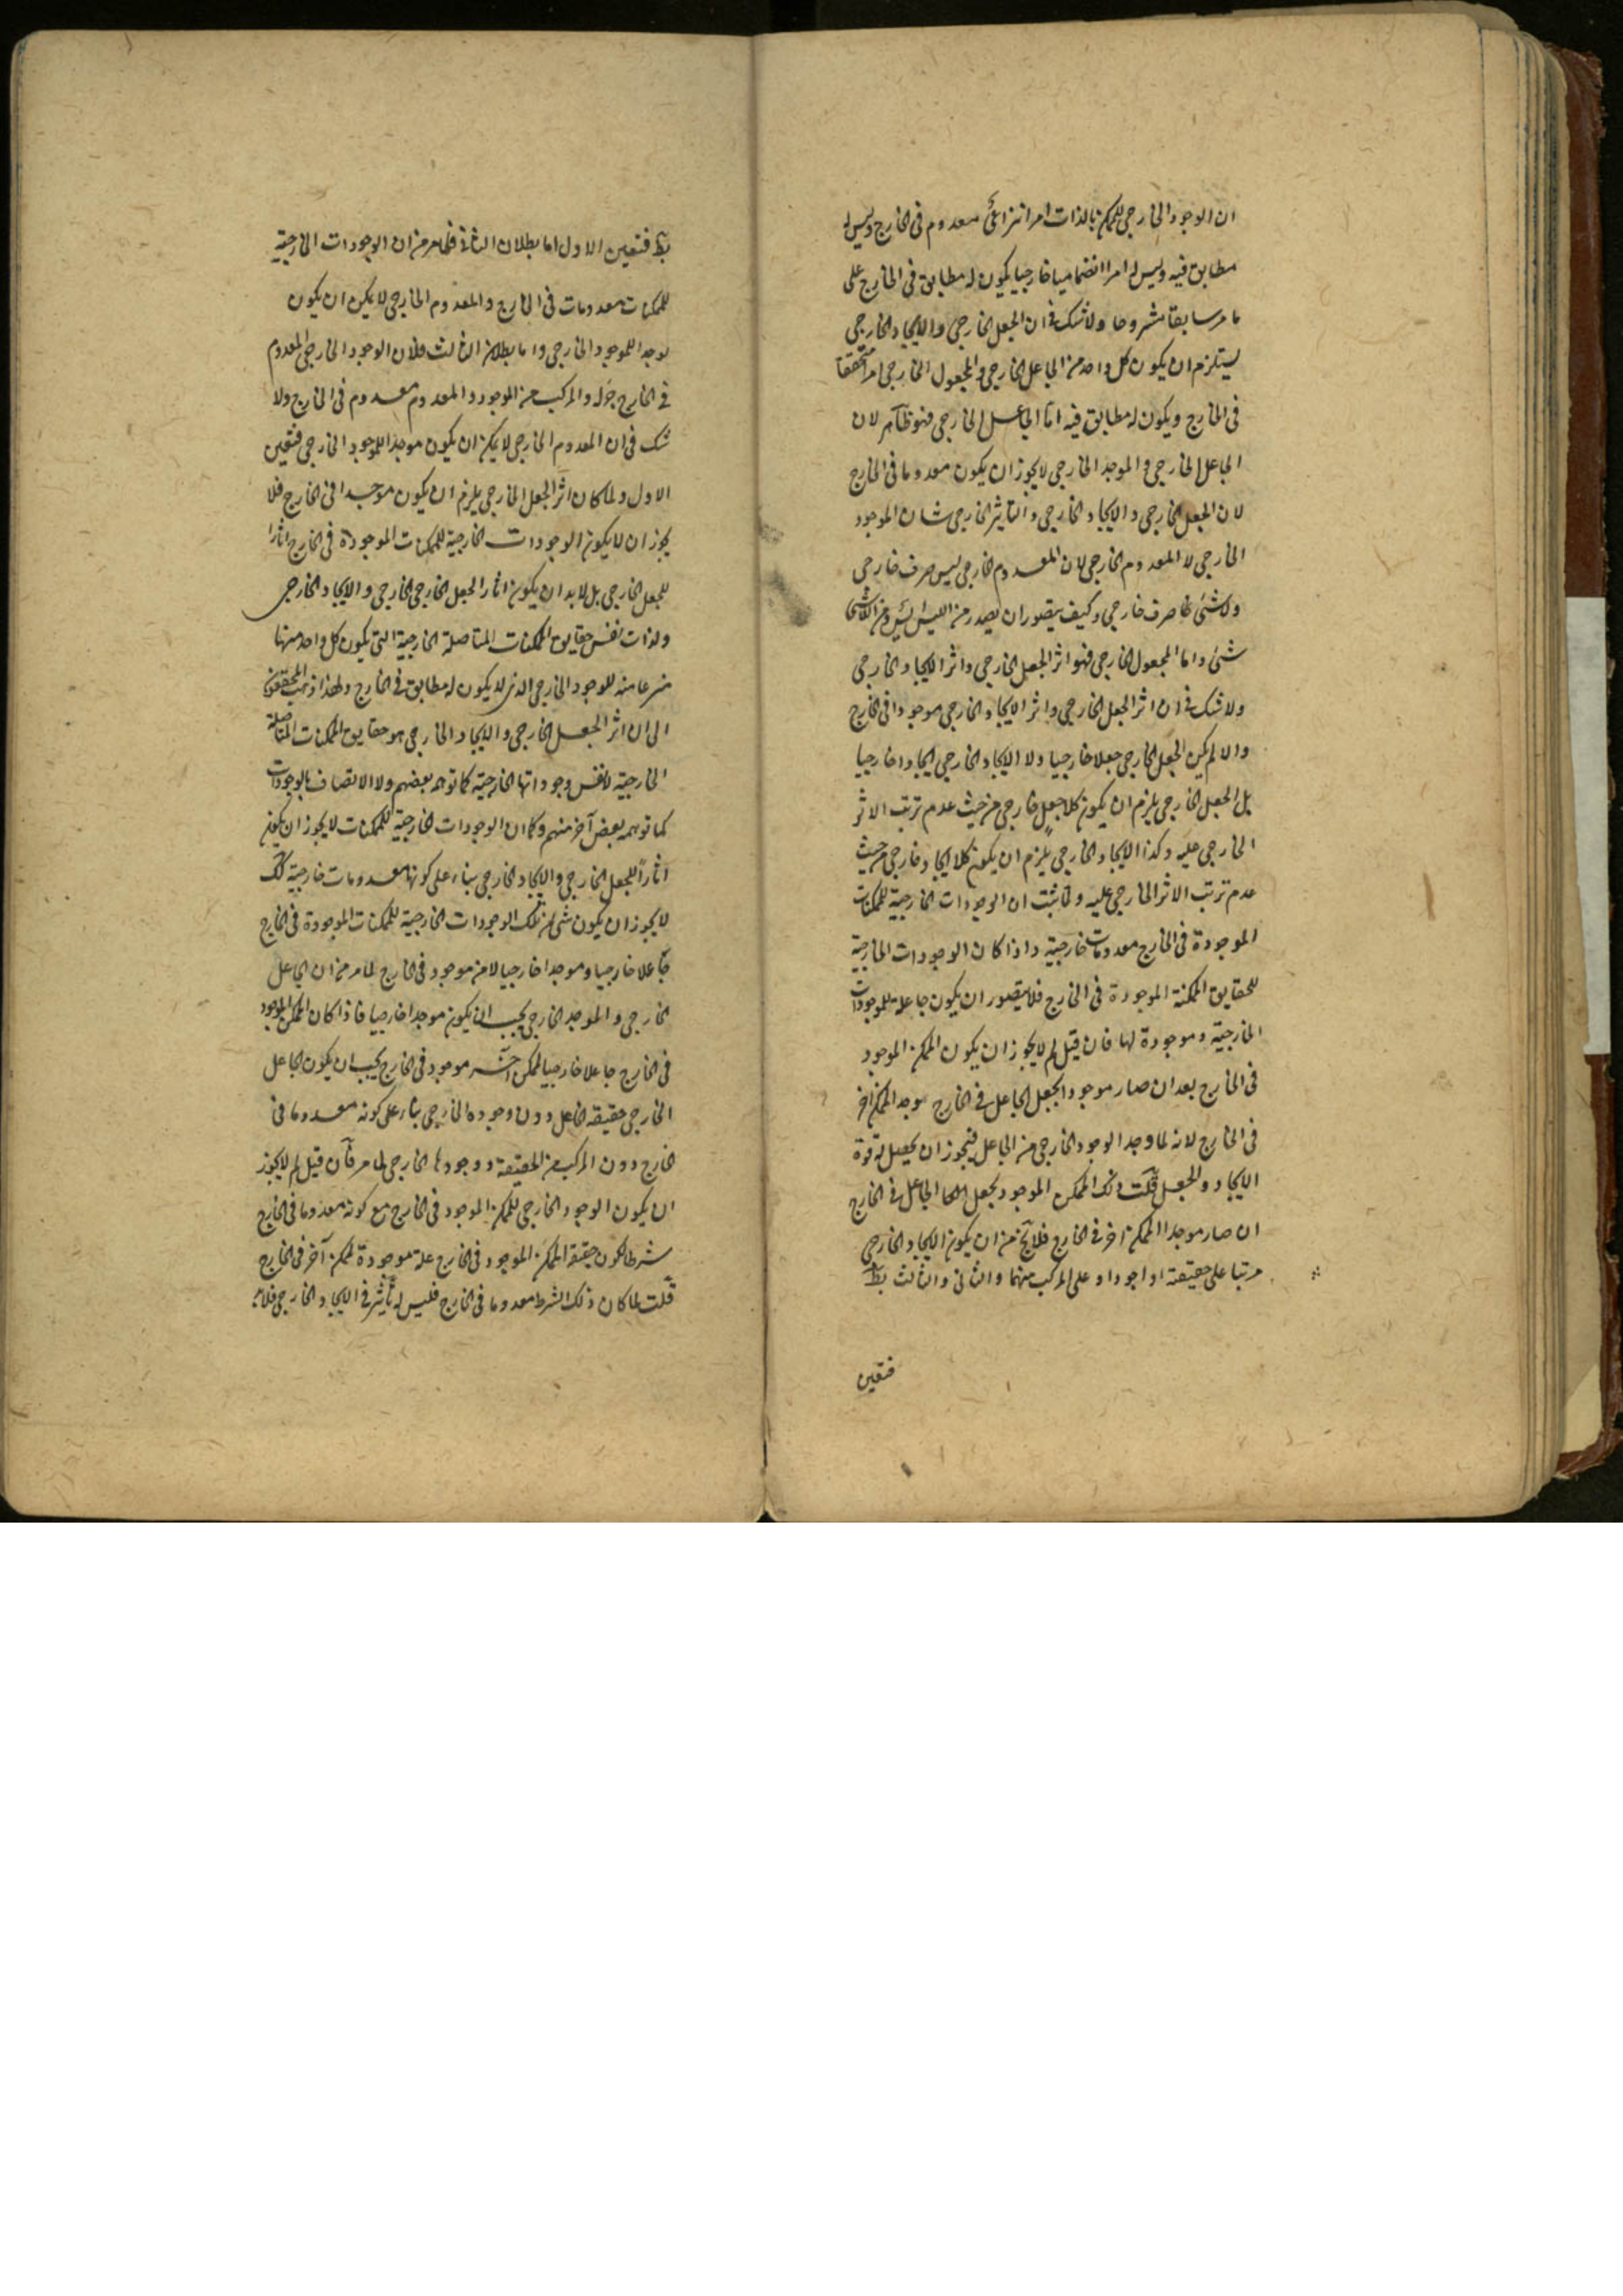 ان الوجود الخارجى للممكن بالذات امر انتزاعىّ معدوم فى الخارج وليس له
مطابق فيه وليس له امرا انضماميا خارجيا يكون له مطابق فى الخارج على
ما مر سابقا مشروحا ولا شك فى ان الجعل الخارجى والايجاد الخارجى
يستلزم ان يكون كل واحد من الجاعل الخارجى والمجعول الخارجى امرا متحققا
فى الخارج ويكون له مطابق فيه امّا الجاعل الخارجى فهو ظاهر لان
الجاعل الخارجى والموجد الخارجى لا يجوز ان يكون معدوما فى الخارج
لان الجعل الخارجى والايجاد الخارجى والتاثير الخارجى شان الموجود
الخارجى لا المعدوم الخارجى لان المعدوم الخارجى ليس صرف خارجى
ولا شئ صرف خارجى وكيف يتصور ان يصدر من الليس ليس ومن اللاشئ
شئ واما المجعول الخارجى فهو اثر الجعل الخارجى واثر الايجاد الخارجى
ولا شك فى ان اثر الجعل الخارجى واثر الايجاد الخارجى موجود فى الخارج
والا لم يكن الجعل الخارجى جعلا خارجيا ولا الايجاد الخارجى ايجادا خارجيا
بل الجعل الخارجى يلزم ان يكون كلا جعل خارجى من حيث عدم ترتب الاثر
الخارجى عليه وكذا الايجاد الخارجى يلزم ان يكون كلا ايجاد خارجى من حيث
عدم ترتب الاثر الخارجى عليه ولما ثبت ان الوجودات الخارجية للممكنات
الموجودة فى الخارج معدومات خارجية واذا كان الوجودات الخارجية
للحقايق الممكنة الموجودة فى الخارج فلا يتصور ان يكون جاعلة للموجودات
الخارجية وموجودة لها فان قيل لم لا يجوز ان يكون الممكن الموجود
فى الخارج بعد ان صار موجودا بجعل الجاعل فى الخارج موجد الممكن آخر
فى الخارج لانه لما وجد الوجود الخارجى من الجاعل فيجوز ان يحصل له قوة
الايجاد والجعل قلت ذلك الممكن الموجود بجعل الجاعل فى الخارج
ان صار موجدا لممكن آخر فى الخارج فلا يخ من ان يكون الايجاد الخارجى
مرتبا على حقيقته او وجوده او على المركب منهما والثانى والثالث بط
فتعين
بط فتعين الاول اما بطلان الثانى فظاهر من ان الوجودات الخارجية
للممكنات معدومات فى الخارج والمعدوم الخارجى لا يمكن ان يكون
موجدا للموجود الخارجى واما بطلان الثالث فلان الوجود الخارجى المعدوم
فى الخارج جزؤه والمركب من الموجود والمعدوم معدوم فى الخارج ولا
شك فى ان المعدوم الخارجى لا يمكن ان يكون موجدا للموجود الخارجى فتعين
الاول ولما كان اثر الجعل الخارجى يلزم ان يكون موجدا فى الخارج فلا
يجوز ان لا يكون الوجودات الخارجية للممكنات الموجودة فى الخارج اثارا
للجعل الخارجى بل لا بد ان يكون اثار الجعل الخارجى الخارجى والايجاد الخارجى
ولذات نفس حقايق الممكنات المتاصلة الخارجية التى يكون كل واحد منها
منتزعا منه للوجود الخارجى الذى لا يكون له مطابق فى الخارج ولهذا ذهب المحققون
الى ان اثر الجعل الخارجى والايجاد الخارجى هو حقايق الممكنات المتاصلة
الخارجية لا نفس وجوداتها الخارجية كما توهمه بعضهم ولا الاتصاف بالوجودات
كما توهمه بعض آخر منهم وكما ان الوجودات الخارجية للممكنات لا يجوز ان يكون
اثاراً للجعل الخارجى والايجاد الخارجى بناء على كونها معدومات خارجية كك
لا يجوز ان يكون شئ من تلك الوجودات الخارجية للممكنات الموجودة فى الخارج
جاعلا خارجيا وموجدا خارجيا لامر موجود فى الخارج لما مر من ان الجاعل
الخارجى والموجد الخارجى يجب ان يكون موجدا خارجيا فاذا كان الممكن الموجود
فى الخارج جاعلا خارجيا لممكن آخر موجود فى الخارج يجب ان يكون الجاعل
الخارجى حقيقته الجاعل دون وجوده الخارجى بناء على كونه معدوما فى
الخارج دون المركب من الحقيقة ووجودها الخارجى لما مر فان قيل لم لا يجوز
ان يكون الوجود الخارجى للممكن الموجود فى الخارج مع كونه معدوما فى الخارج
شرطا لكون حقيقة الممكن الموجود فى الخارج علة موجودة لممكن آخر فى الخارج
قلت لما كان ذلك الشرط معدوما فى الخارج فليس له تأثير فى الايجاد الخارجى